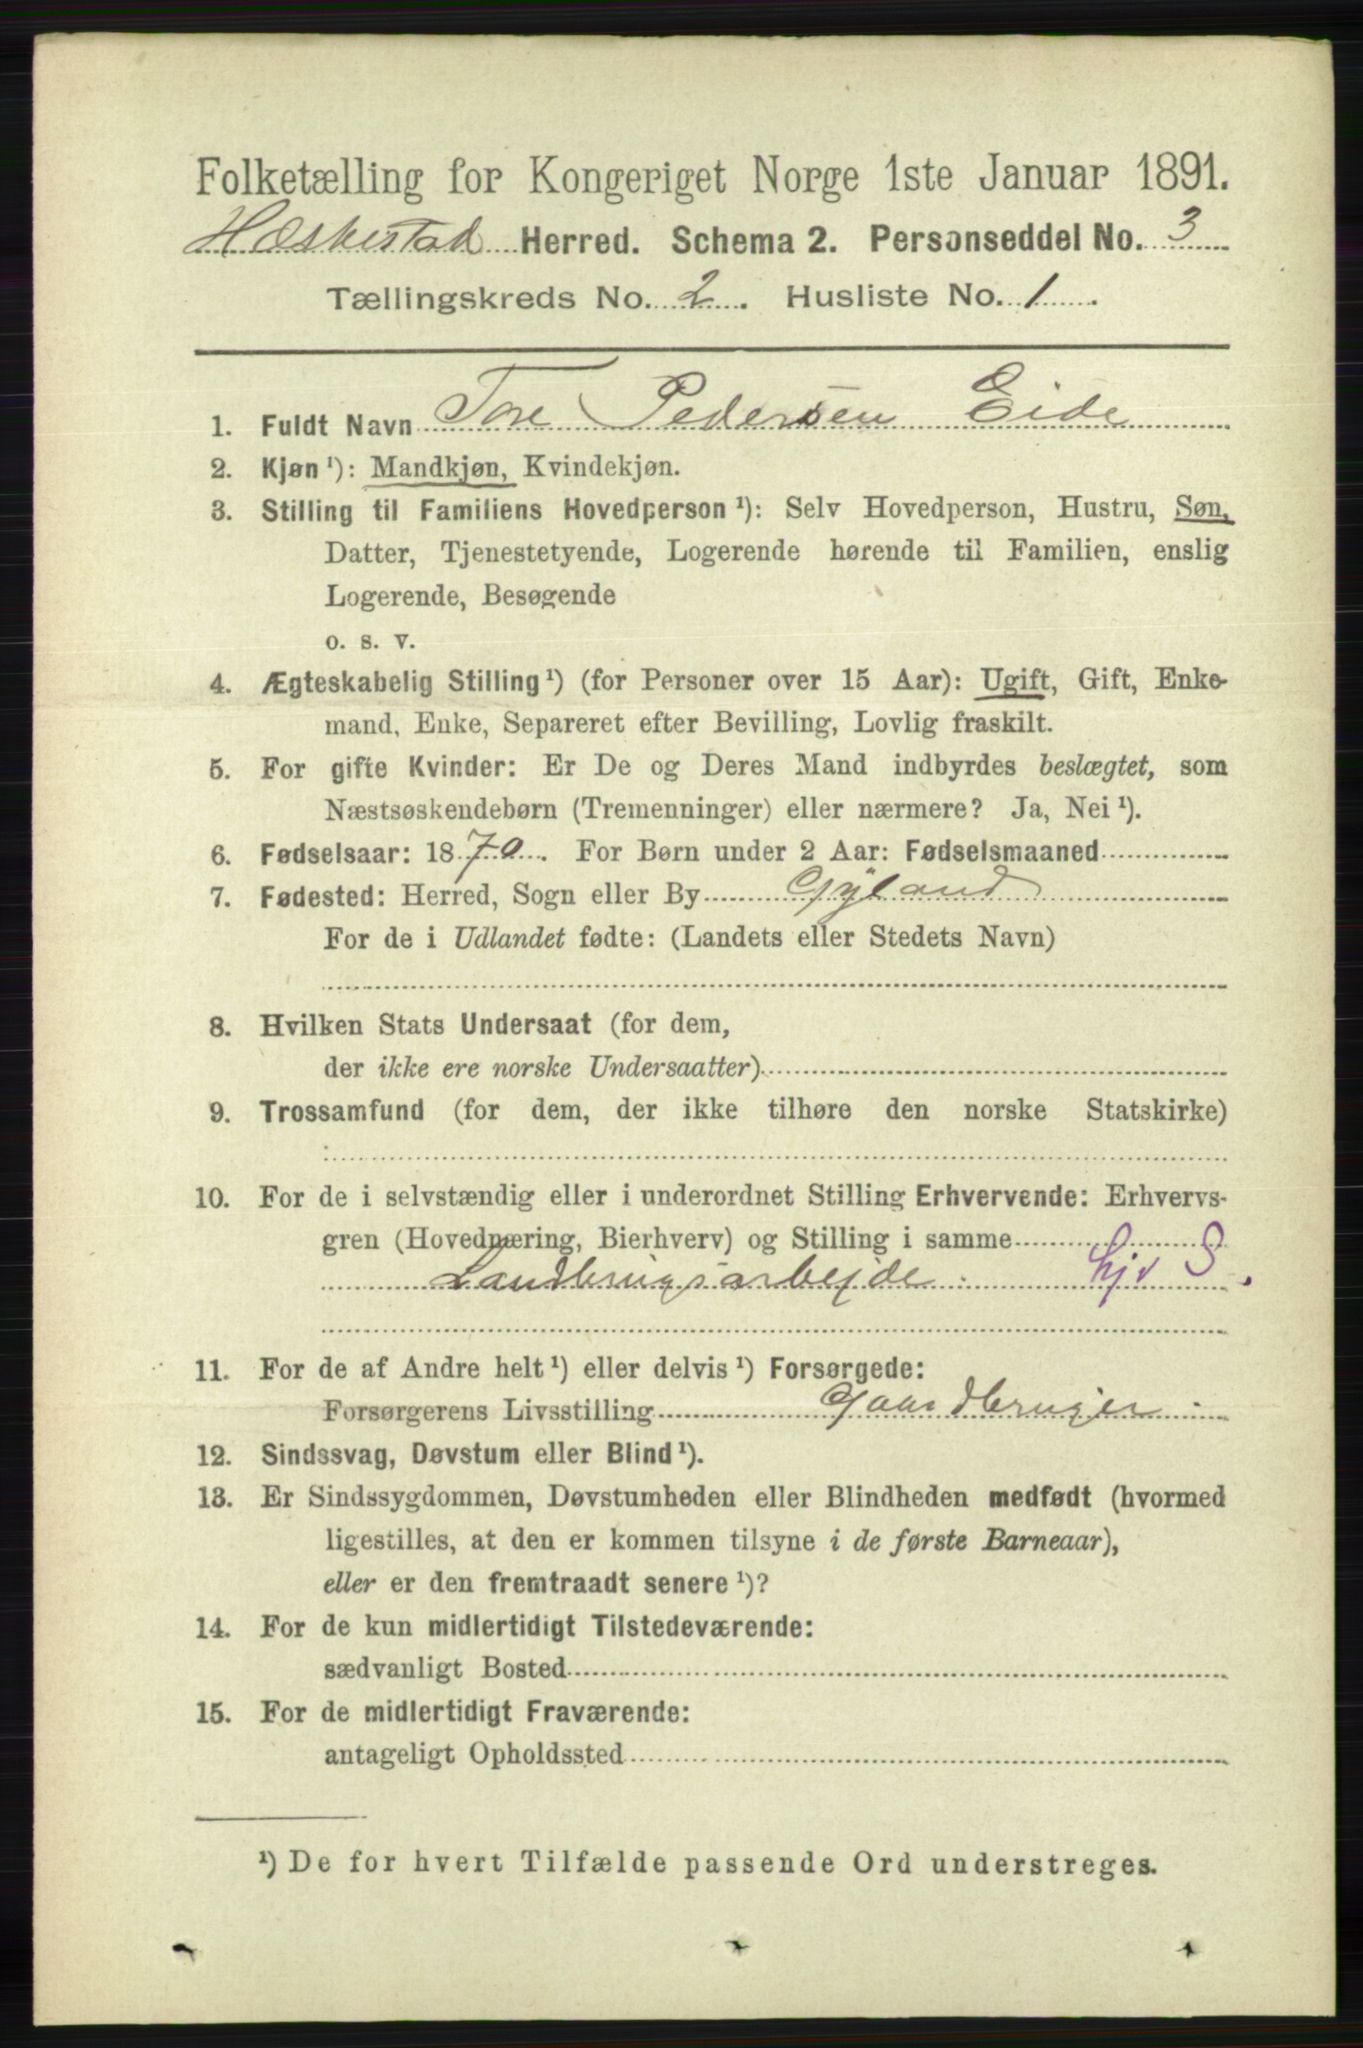 Folketælling for Kongeriget Norge 1ste Januar 1891.
Hæskestad Herred. Schema 2. Personseddel No. 3
Tællingskreds No. 2. Husliste No. 1.
1. Fuldt Navn Tore Pedersen Eide
2. Kjøn ¹): Mandkjøn, Kvindekjøn.
3. Stilling til Familiens Hovedperson ¹): Selv Hovedperson, Hustru, Søn,
Datter, Tjenestetyende, Logerende hørende til Familien, enslig
Logerende, Besøgende
o. s. v.
4. Ægteskabelig Stilling ¹) (for Personer over 15 Aar): Ugift, Gift, Enke-
mand, Enke, Separeret efter Bevilling, Lovlig fraskilt.
5. For gifte Kvinder: Er De og Deres Mand indbyrdes beslægtet, som
Næstsøskendebørn (Tremenninger) eller nærmere? Ja, Nei ¹).
6. Fødselsaar: 1870. For Børn under 2 Aar: Fødselsmaaned
7. Fødested: Herred, Sogn eller By Gyland
For de i Udlandet fødte: (Landets eller Stedets Navn)
8. Hvilken Stats Undersaat (for dem,
der ikke ere norske Undersaatter)
9. Trossamfund (for dem, der ikke tilhøre den norske Statskirke)
10. For de i selvstændig eller i underordnet Stilling Erhvervende: Erhvervs-
gren (Hovednæring, Bierhverv) og Stilling i samme
Landbrugsarbejde. hjv S.
11. For de af Andre helt ¹) eller delvis ¹) Forsørgede:
Forsørgerens Livsstilling Gaardbruger.
12. Sindssvag, Døvstum eller Blind ¹).
13. Er Sindssygdommen, Døvstumheden eller Blindheden medfødt (hvormed
ligestilles, at den er kommen tilsyne i de første Barneaar),
eller er den fremtraadt senere ¹)?
14. For de kun midlertidigt Tilstedeværende:
sædvanligt Bosted
15. For de midlertidigt Fraværende:
antageligt Opholdssted
¹) De for hvert Tilfælde passende Ord understreges.